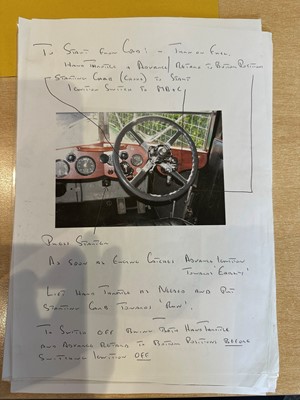 To Start From Cold: - Turn on Fuel
Hand Throttle & Advance/Retard to Bottom Position
Starting Carb (Choke) to Start
Ignition Switch to M B & C
Press Starter
As soon as Engine Catches Advance Ignition
Towards Early!
Lift Hand Throttle as Needed and Put
Starting Carb Towards 'Run'.
To Switch off Again Both Hand Throttle
and Advance Retard to Bottom Positions Before
Switching Ignition Off